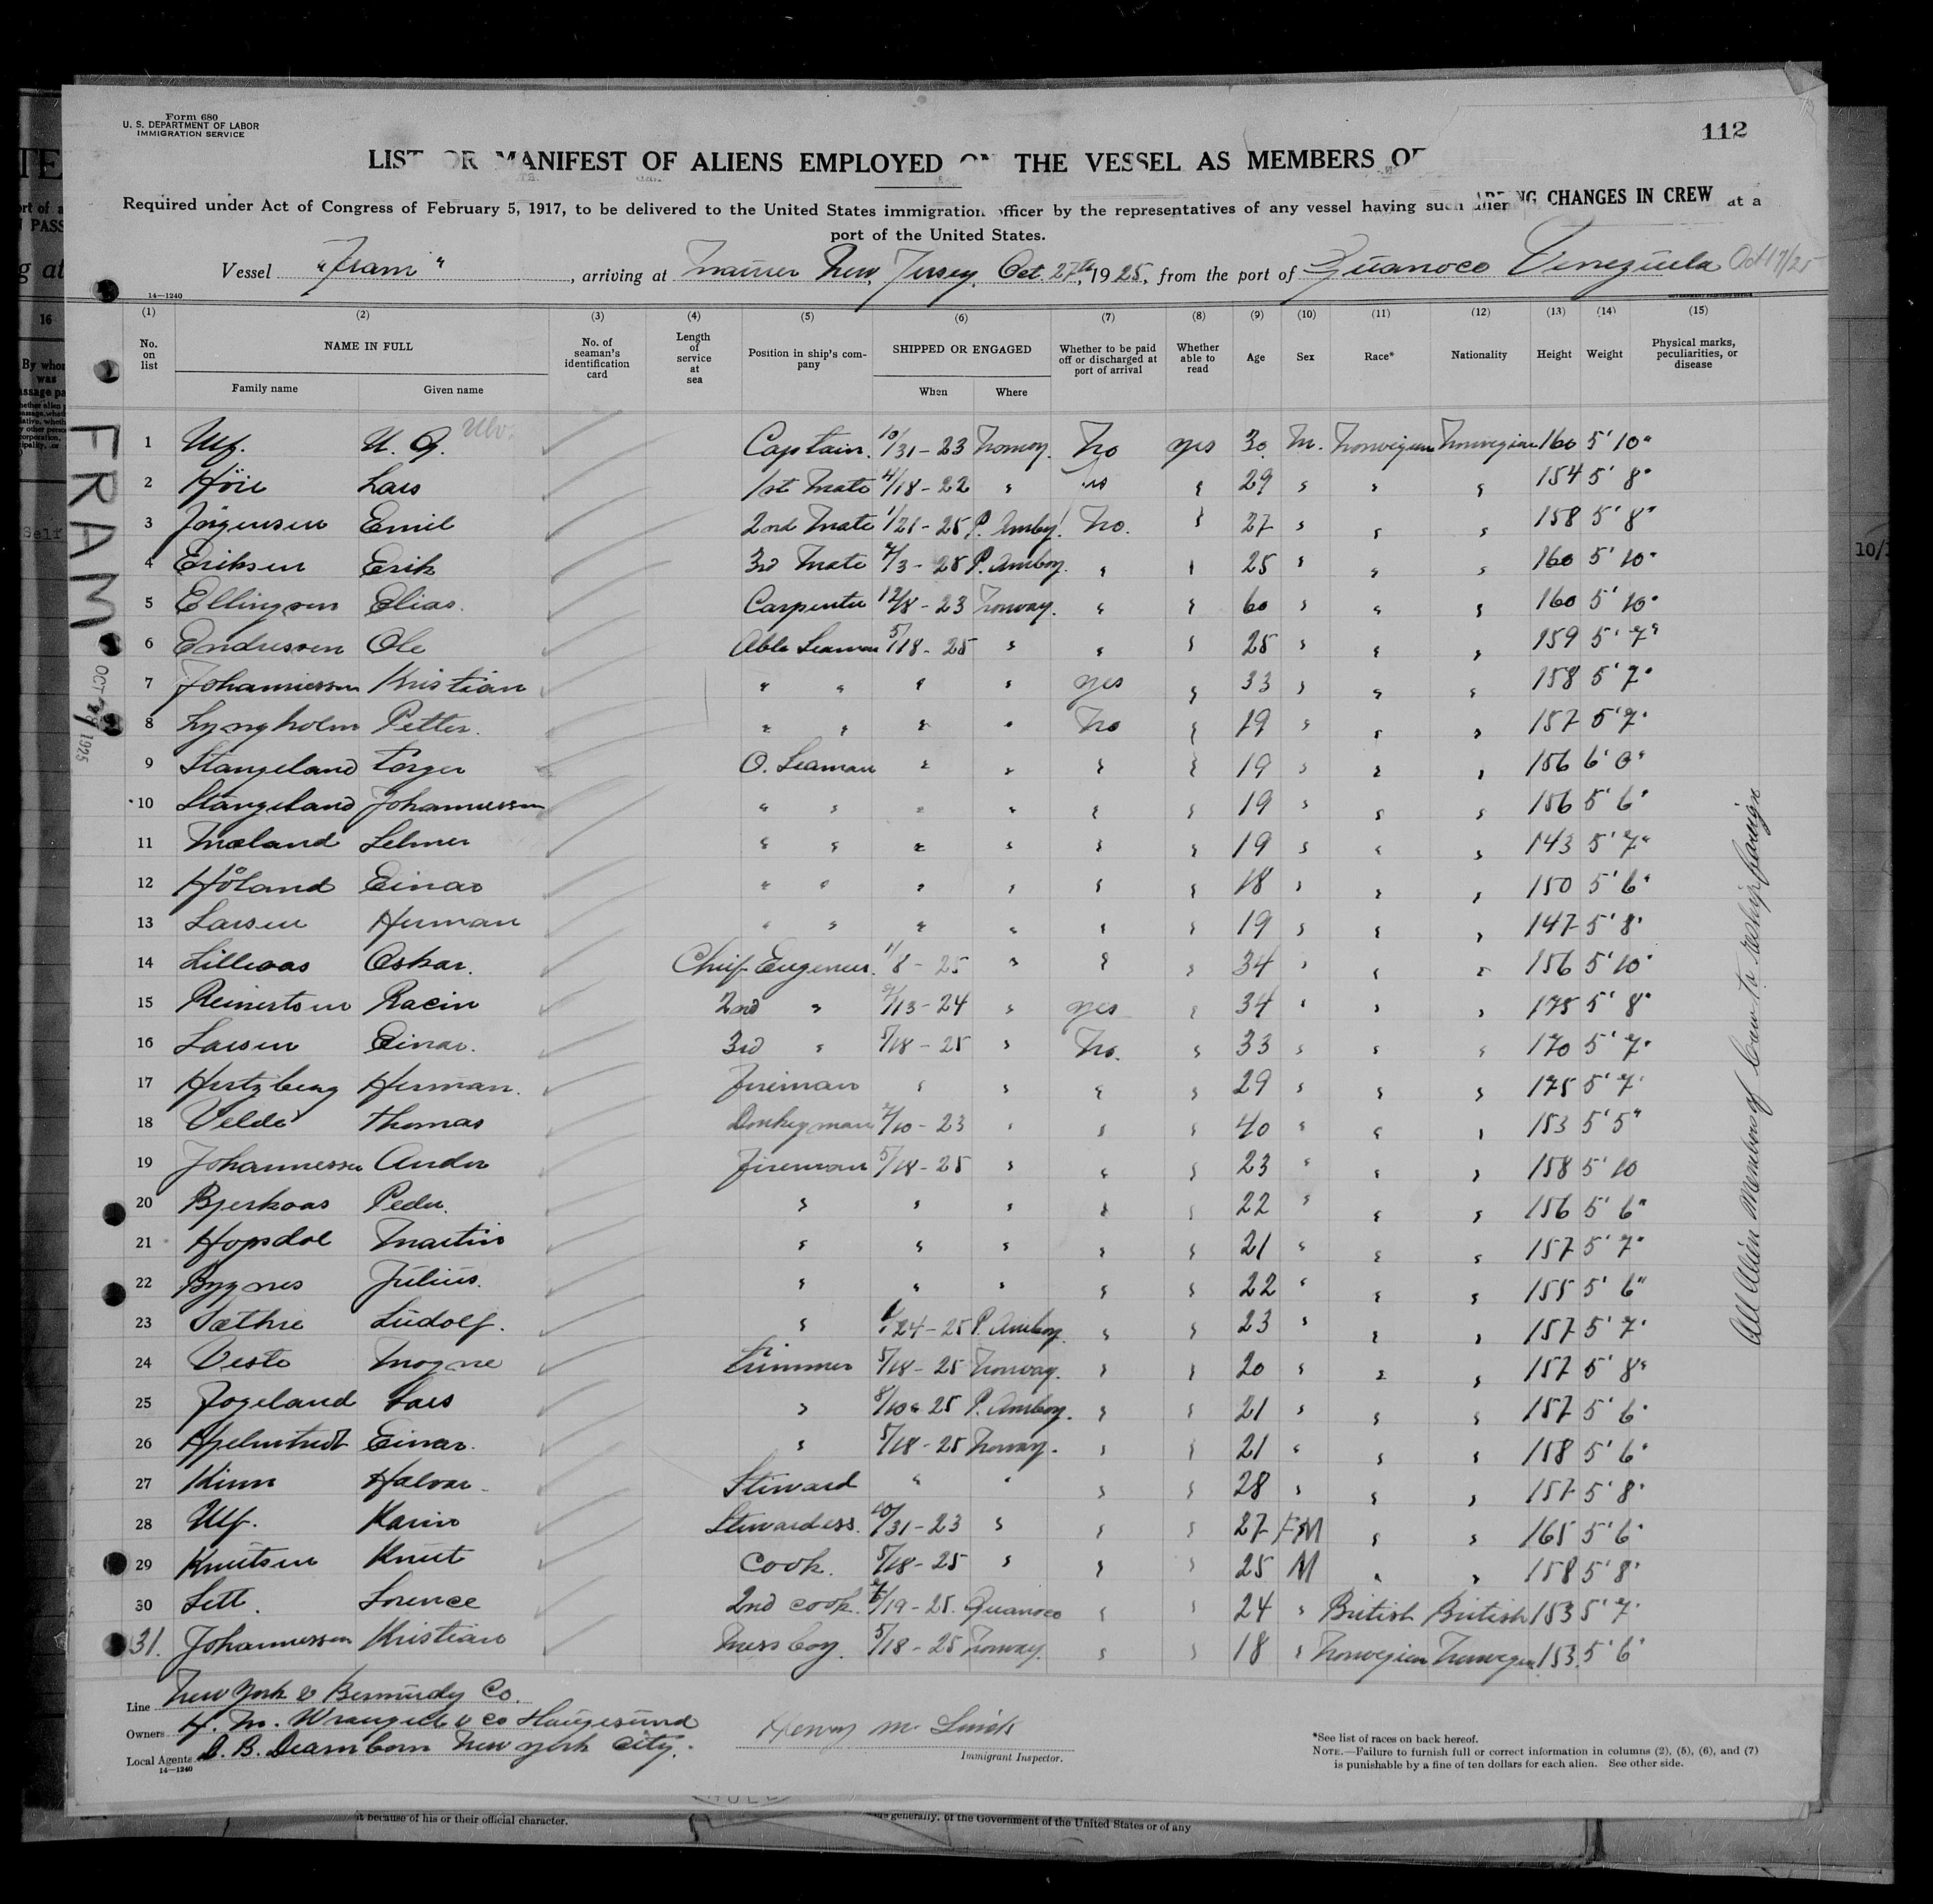 Form 680
U. S. DEPARTMENT OF LABOR
IMMIGRATION SERVICE
112
LIST OR MANIFEST OF ALIENS EMPLOYED ON THE VESSEL AS MEMBERS OF
NG CHANGES IN CREW
Required under Act of Congress of February 5, 1917, to be delivered to the United States immigration officer by the representatives of any vessel having such alien at a
port of the United States.
Vessel "Fram", arriving at Maurer New Jersey, Oct. 27th, 1925, from the port of Guanoco Venezuela Oct 17/25
14—1240
(1) (2) (3) (4) (5) (6) (7) (8) (9) (10) (11) (12) (13) (14) (15)
No. on list NAME IN FULL Family name Given name No. of seaman's identification card Length of service at sea Position in ship's company SHIPPED OR ENGAGED When Where Whether to be paid off or discharged at port of arrival Whether able to read Age Sex Race* Nationality Height Weight Physical marks, peculiarities, or disease
1 Ulf. U. G. Captain. 10/31-23 Norway. No yes 30 M. Norwegian Norwegian 160 5' 10"
2 Höie Lars 1st Mate 4/18-22 " " 29 " " " 154 5' 8"
3 Jørgensen Emil 2nd Mate 1/21-25 P. Amboy. No. " 27 " " " 158 5' 8"
4 Eriksen Erik 3rd Mate 7/3-25 P. Amboy. " " 25 " " " 160 5' 10"
5 Ellingsen Elias. Carpenter 12/8-23 Norway. " " 60 " " " 160 5' 10"
6 Endresen Ole Able Seaman 5/18-25 " " " 25 " " " 159 5' 7"
7 Johannessen Kristian " " " " yes " 33 " " " 158 5' 7"
8 Lyngholm Petter. " " " " No " 19 " " " 157 5' 7"
9 Stangeland Torger O. Seaman " " " " 19 " " " 156 6' 0"
10 Stangeland Johannessen " " " " " " 19 " " " 156 5' 6"
11 Mæland Selmer " " " " " " 19 " " " 143 5' 7"
12 Håland Einar " " " " " " 18 " " " 150 5' 6"
13 Larsen Herman " " " " " " 19 " " " 147 5' 8"
14 Lilleaas Oskar. Chief Engineer. 1/8-25 " " " 34 " " " 156 5' 10"
15 Reinertsen Racin 2nd " 9/13-24 " yes " 34 " " " 175 5' 8"
16 Larsen Einar. 3rd " 5/18-25 " No. " 33 " " " 170 5' 7"
17 Hertzberg Herman. Fireman " " " " 29 " " " 175 5' 7"
18 Velde Thomas Donkeyman 7/10-23 " " " 40 " " " 153 5' 5"
19 Johannessen Ander Fireman 5/18-25 " " " 23 " " " 158 5' 10
20 Bjerkaas Peder. " " " " " 22 " " " 156 5' 6"
21 Hopsdal Martin " " " " " 21 " " " 157 5' 7"
22 Bygnes Julius. " " " " " 22 " " " 155 5' 6"
23 Sæthre Ludolf. " 24-25 P. Amboy. " " 23 " " " 157 5' 7"
24 Veste Mogne Trimmer 5/18-25 Norway. " " 20 " " " 157 5' 8"
25 Jogeland Lars " 8/10-25 P. Amboy. " " 21 " " " 157 5' 6"
26 Hjelmtvedt Einar. " 5/18-25 Norway. " " 21 " " " 158 5' 6"
27 Kinn Halvar. Steward " " " " 28 " " " 157 5' 8"
28 Ulf. Karin Stewardess. 10/31-23 " " " 27 FM " " 165 5' 6"
29 Knutsen Knut Cook. 5/18-25 " " " 25 M " " 158 5' 8"
30 Sett. Lorence 2nd cook. /19-25. Guanoco " " 24 " British British 153 5' 7"
31. Johannessen Kristian Mess boy. 5/18-25 Norway. " " 18 " Norwegian Norwegian 153. 5' 6"
FRAM
OCT 27 1925
All Alien Members of Crew to reship foreign
Line New York & Bermudy Co.
Owners H. M. Wrangell & Co Haugesund
Local Agents D. B. Dearborn New York City.
14—1240
Immigrant Inspector.
*See list of races on back hereof.
NOTE.—Failure to furnish full or correct information in columns (2), (5), (6), and (7)
is punishable by a fine of ten dollars for each alien. See other side.
t because of his or their official character.
generally, of the Government of the United States or of any